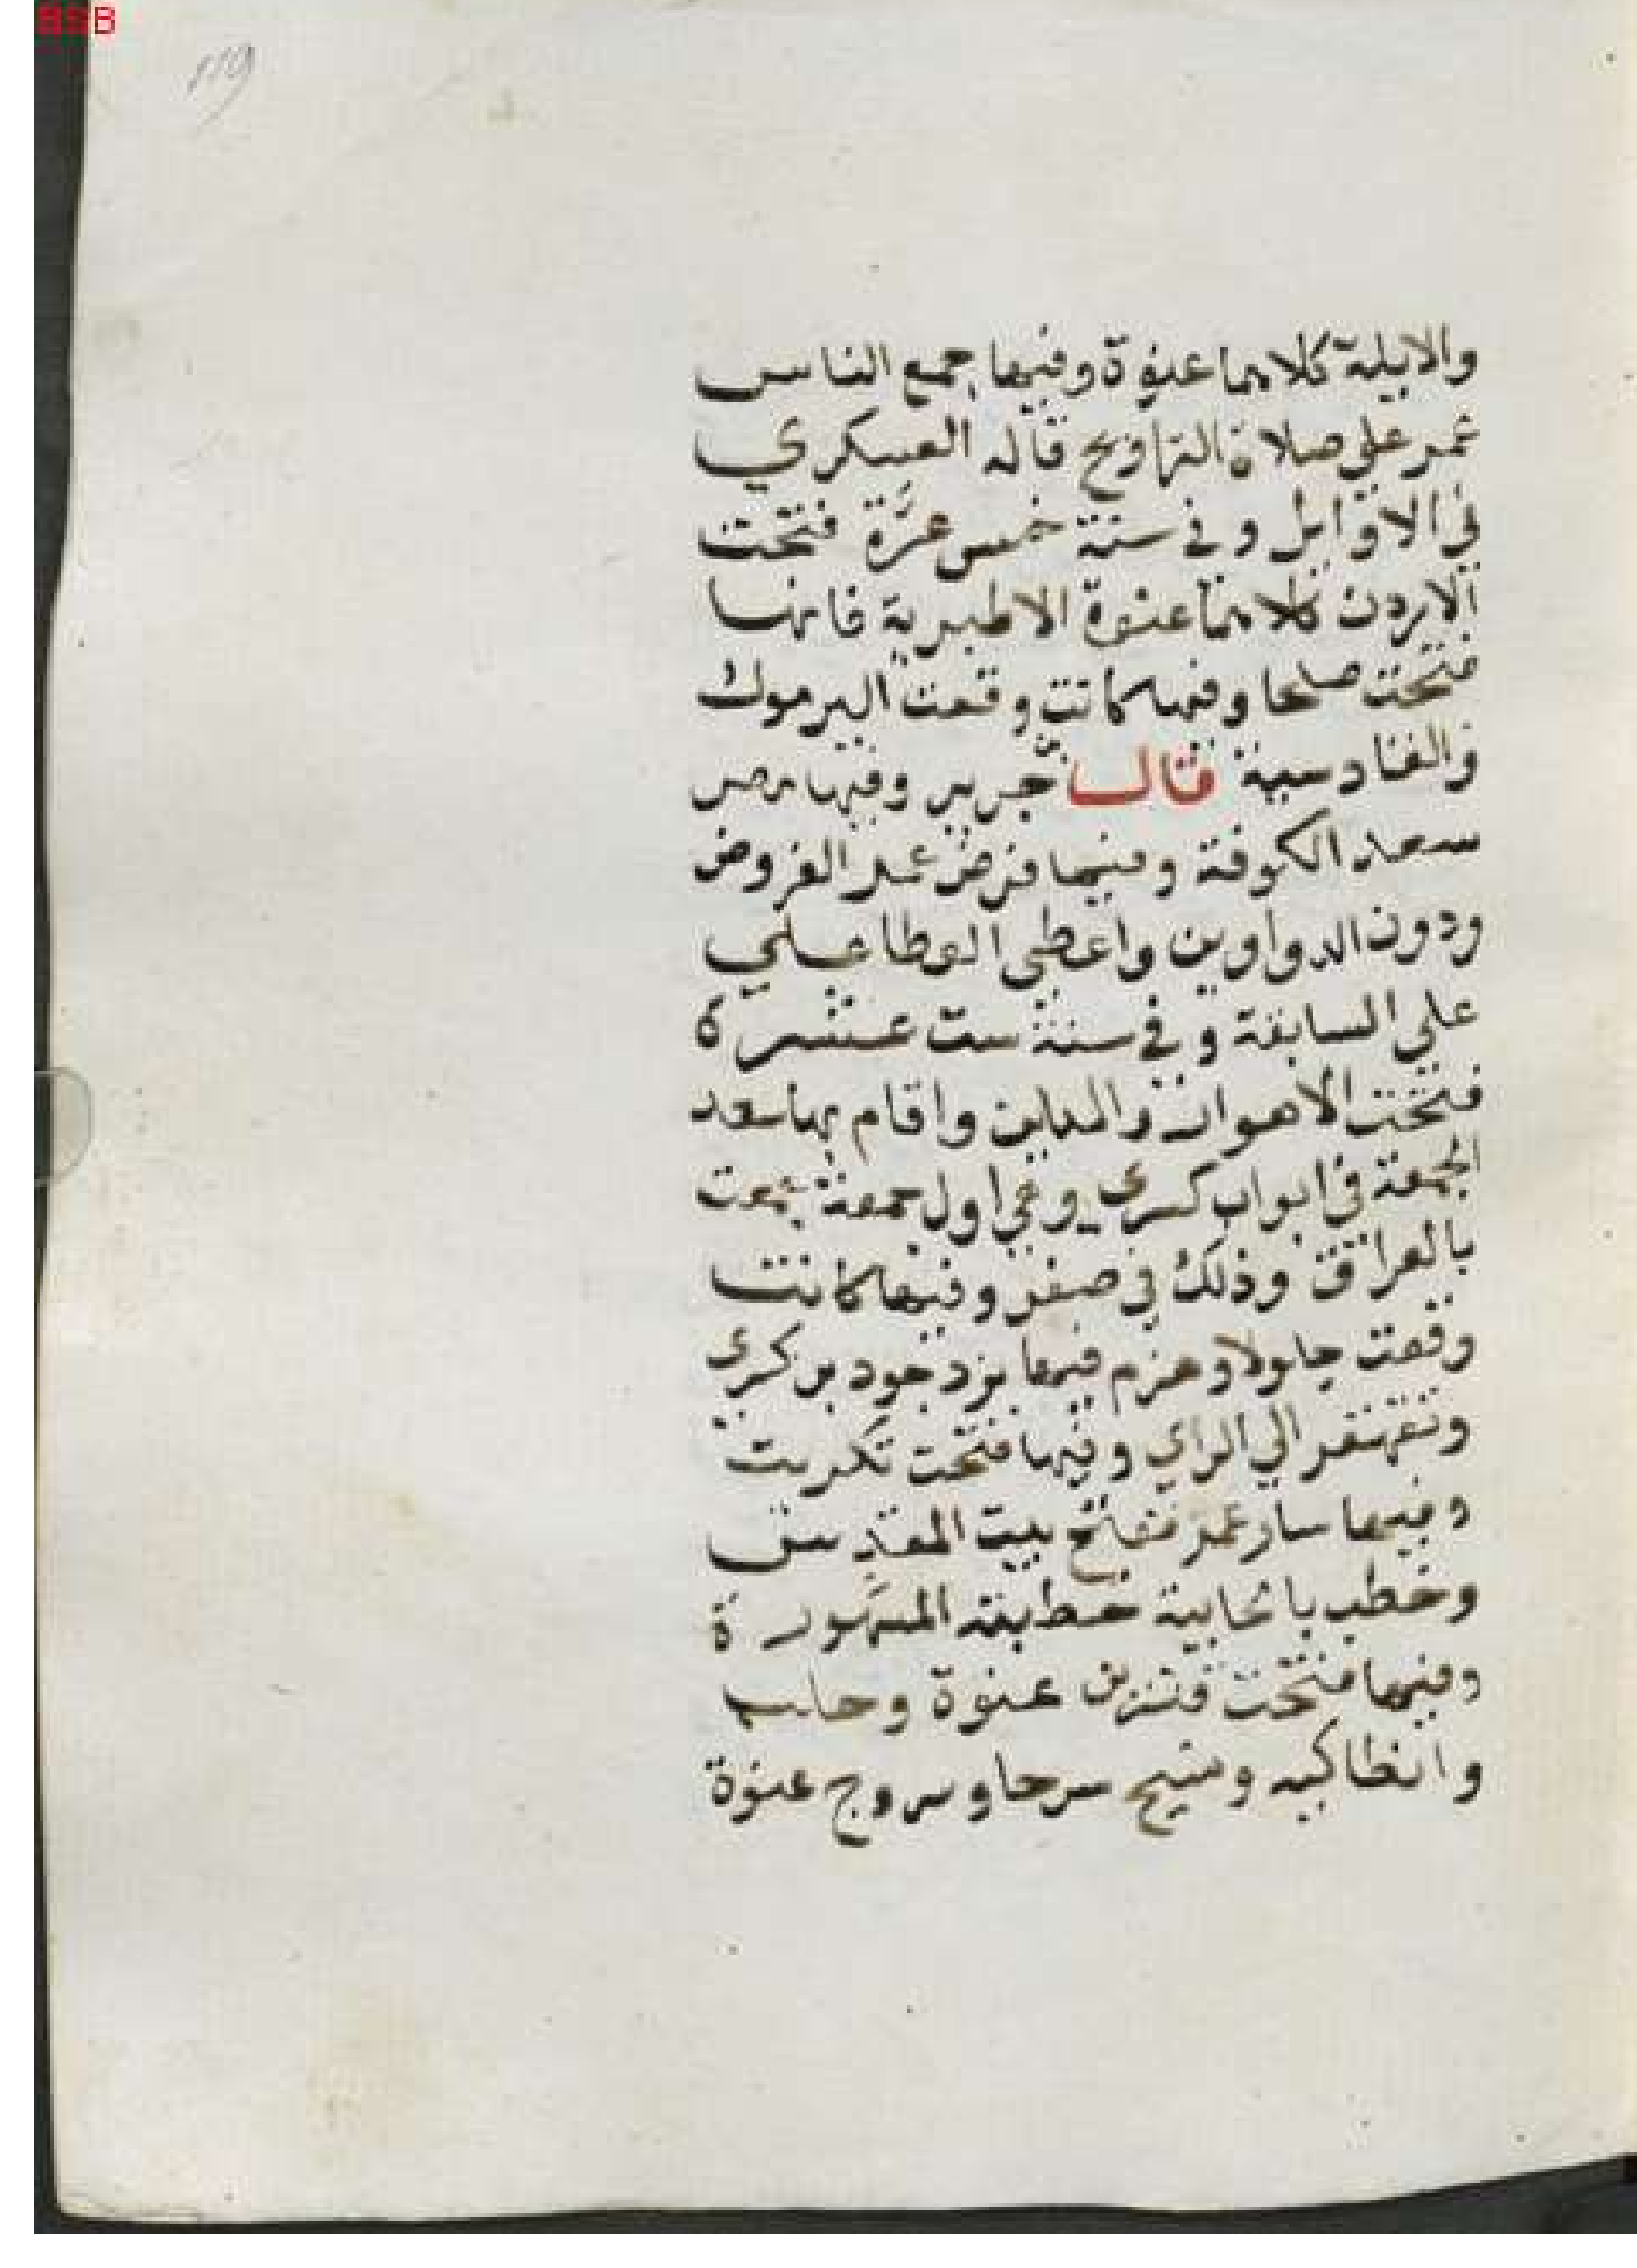 BSB
119
والابلية كلاهما عنوة وفيها جمع الناس
عمر على صلاة التراويح قاله العسكري
في الاوايل وفي سنة خمس عرة فتحت
الاردن كلاهما عنوة الاطبرية فانها
فتحت صلحا وفيها كانت وقعت اليرموك
والقادسية قال جرير وفيها مصر
سعد الكوفة وفيها فرض عمر الفروض
ودون الدواوين واعطى العطا على
على السابقة وفي سنة ست عشرة
فتحت الاهواز والمداين واقام بها سعد
الجمعة في ابواب كسرى وهي اول جمعة جمعت
بالعراق وذلك في صفر وفيها كانت
وقعت جلولا وهزم فيها يزدجود بن كسرى
وتقهقر الي الراي وفيها فتحت تكريت
وفيها سار عمر ففتح بيت المقدس
وخطب بالجابية خطبته المشهورة
وفيها فتحت قنسرين عنوة وحلب
وانطاكيه ومنبج سرحا وسروج عنوة